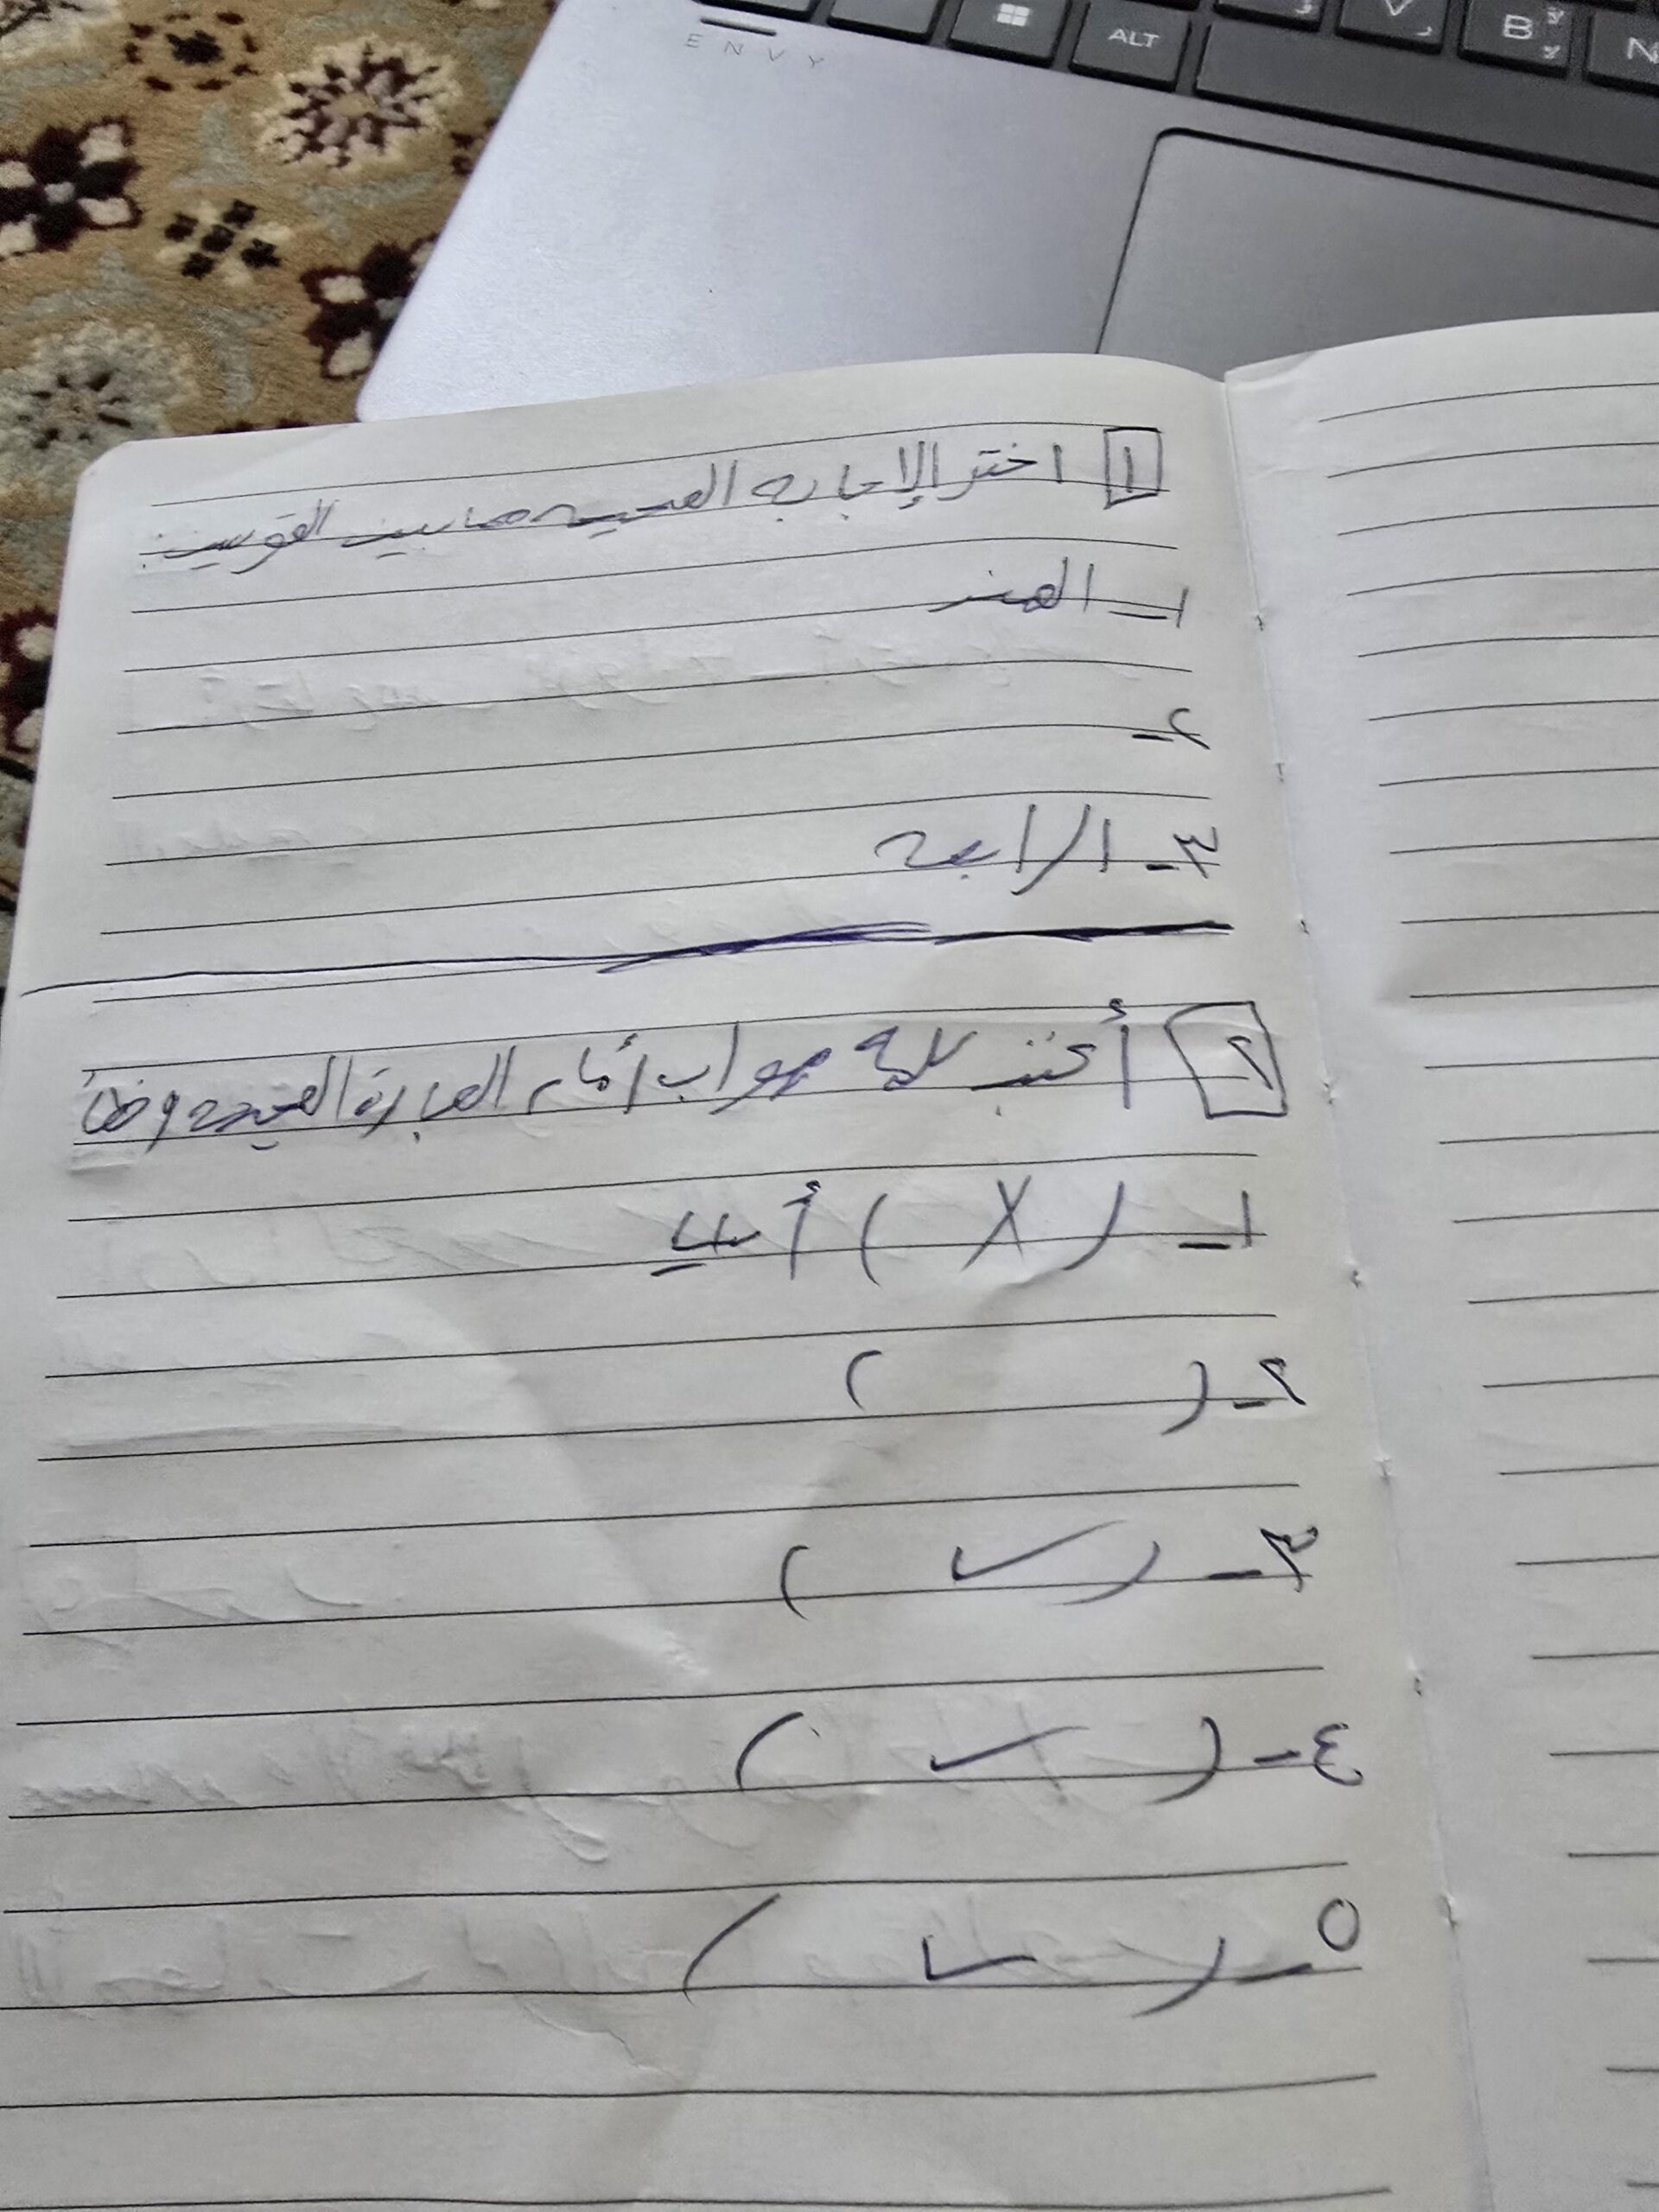 ENVY
ALT
V
B
N
١ اختر الإجابة الصحيحة مما بين القوسين
١- الهند
٢-
٣- الرابعة
٢ أكتب كلمة صواب أمام العبارة الصحيحة
١- ( X ) أ
٢- ( )
٣- ( ✓ )
٤- ( ✓ )
٥- ( ✓ )